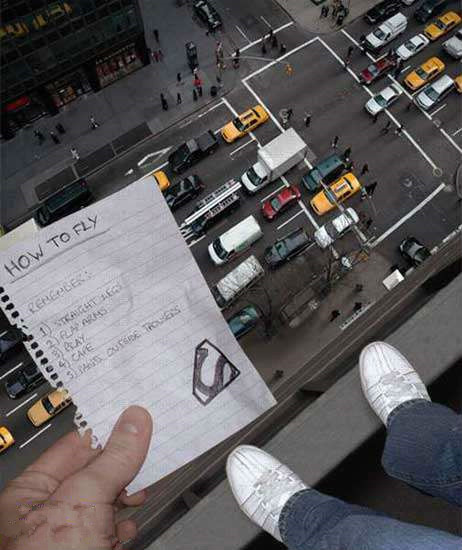 HOW TO FLY
REMEMBER:
1) STRAIGHT LEGS
2) FLAP ARMS
3) PRAY
4) CAPE
5) PANTS OUTSIDE TROUSERS
S